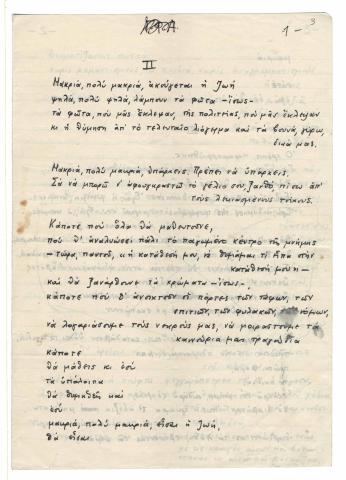 1- 3
II
Μακριά, πολύ μακριά, ἀκούγεται ἡ ζωή
ψηλά, πολύ ψηλά, λάμπουν τὰ φῶτα -ἴσως-
τὰ φῶτα, ποὺ μᾶς ἔκλεψαν, τῆς πολιτείας, ποὺ μᾶς ἔκλεψαν
κι ἡ θύμηση ἀπ' τὸ τελευταῖο λιόγερμα καὶ τὰ βουνά, γύρω,
δικά μας.
Μακριά, πολύ μακριά, ὑπάρχεις. Πρέπει νὰ ὑπάρχεις.
Σὰ νὰ μπορῶ ν' ἀφουγκραστῶ τὸ γέλιο σου, ξανθό, πίσω ἀπ'
τοὺς τοίχους.
Κάποτε ποὺ ὅλα θὰ
ποὺ θ' ἀναλώσει πάλι τὸ παγωμένο κέντρο τῆς μνήμης
-τώρα, παντοῦ, κι ἡ κατάθεσή μου, νὰ θυμᾶμαι τί εἶπα στὴν
κατάθεσή μου; -
καὶ θὰ ξανάρθουνε τὰ χρώματα -ἴσως-,
κάποτε ποὺ θ' ἀνοιχτοῦν οἱ πόρτες τῶν τάφων, τῶν
σπιτιῶν, τῶν φυλακῶν,
νὰ λογαριάσουμε τοὺς νεκρούς μας, νὰ μοιραστοῦμε τὰ
καινούρια μας τραγούδια
κάποτε
θὰ μάθεις κι ἐσύ
τὰ ὑπόλοιπα
θὰ θυμηθεῖς καὶ
ἐσύ
μακριά, πολύ μακριά, εἶσαι ἡ ζωή,
θὰ εἶσαι